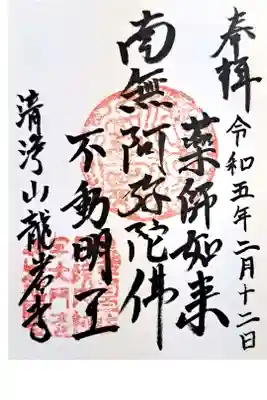 奉拝
令和五年二月十二日
薬師如来
南無阿弥陀佛
不動明王
清涼山龍岩寺